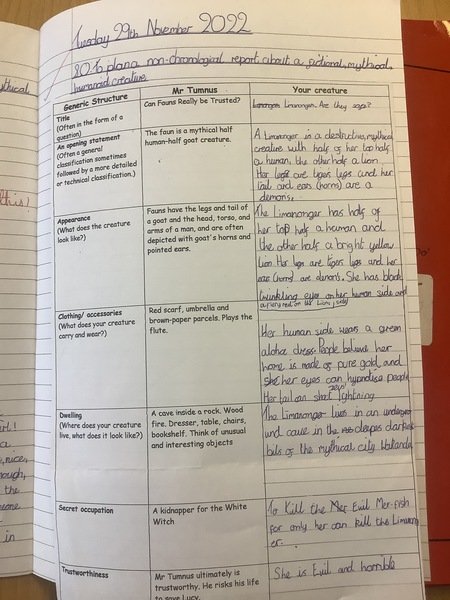 Tuesday 29th November 2022
LO: To plan a non-chronological report about a fictional, mythical,
humanoid creature.
Generic Structure
Mr Tumnus
Your creature
Title
(Often in the form of a
question)
Can Fauns Really be Trusted?
Limanonger. Are they safe?
An opening statement
(Often a general
classification sometimes
followed by a more detailed
or technical classification.)
The faun is a mythical half
human-half goat creature.
A Limanonger is a destructive, mythical
creature with half of her top half
a human, the other half a lion.
Her legs are tigers legs and her
tail and ears (horns) are a
demons.
Appearance
(What does the creature
look like?)
Fauns have the legs and tail of
a goat and the head, torso, and
arms of a man, and are often
depicted with goat's horns and
pointed ears.
The Limanonger has half of
her top half a human and
the other half a bright yellow
lion. Her legs are tigers legs and her
ears (horns) are demons. She has black
twinkling eyes on her human side and
a fiery red on the Lions side
Clothing/ accessories
(What does your creature
carry and wear?)
Red scarf, umbrella and
brown-paper parcels. Plays the
flute.
Her human side wears a green
aloha dress. People believe her
home is made of pure gold and
her eyes can hypnotise people
Her tail can shoot lightning
Dwelling
(Where does your creature
live, what does it look like?)
A cave inside a rock. Wood
fire. Dresser, table, chairs,
bookshelf. Think of unusual
and interesting objects
The Limanonger lives in an undergro
und cave in the deepes darkest
bits of the mythical city
Secret occupation
A kidnapper for the White
Witch
To Kill the Evil Mer-fish
for only her can kill the Limanong
er.
Trustworthiness
Mr Tumnus ultimately is
trustworthy. He risks his life
to save Lucy.
She is Evil and horrible